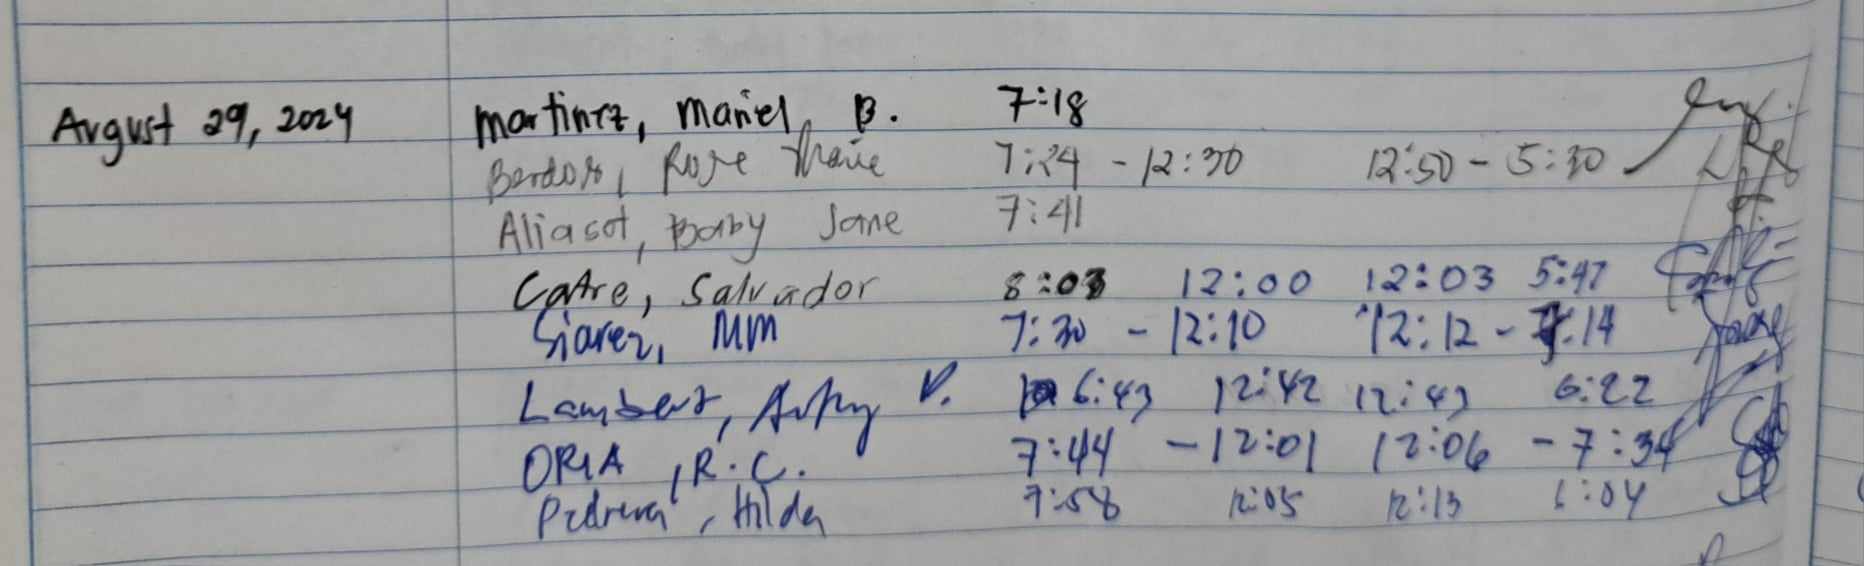 August 29, 2024 Martinez, Mariel B. 7:18
Bardos, Rose Marie 7:24 - 12:30 12:50 - 5:30
Aliasot, Baby Jane 7:41
Catre, Salvador 8:03 12:00 12:03 5:47
Siarez, MM 7:30 - 12:10 12:12 - 7:14
Lambert, D. 6:43 12:42 12:43 6:22
ORIA, R.C. 7:44 - 12:01 12:06 - 7:34
Hilda 7:58 12:05 12:13 6:04